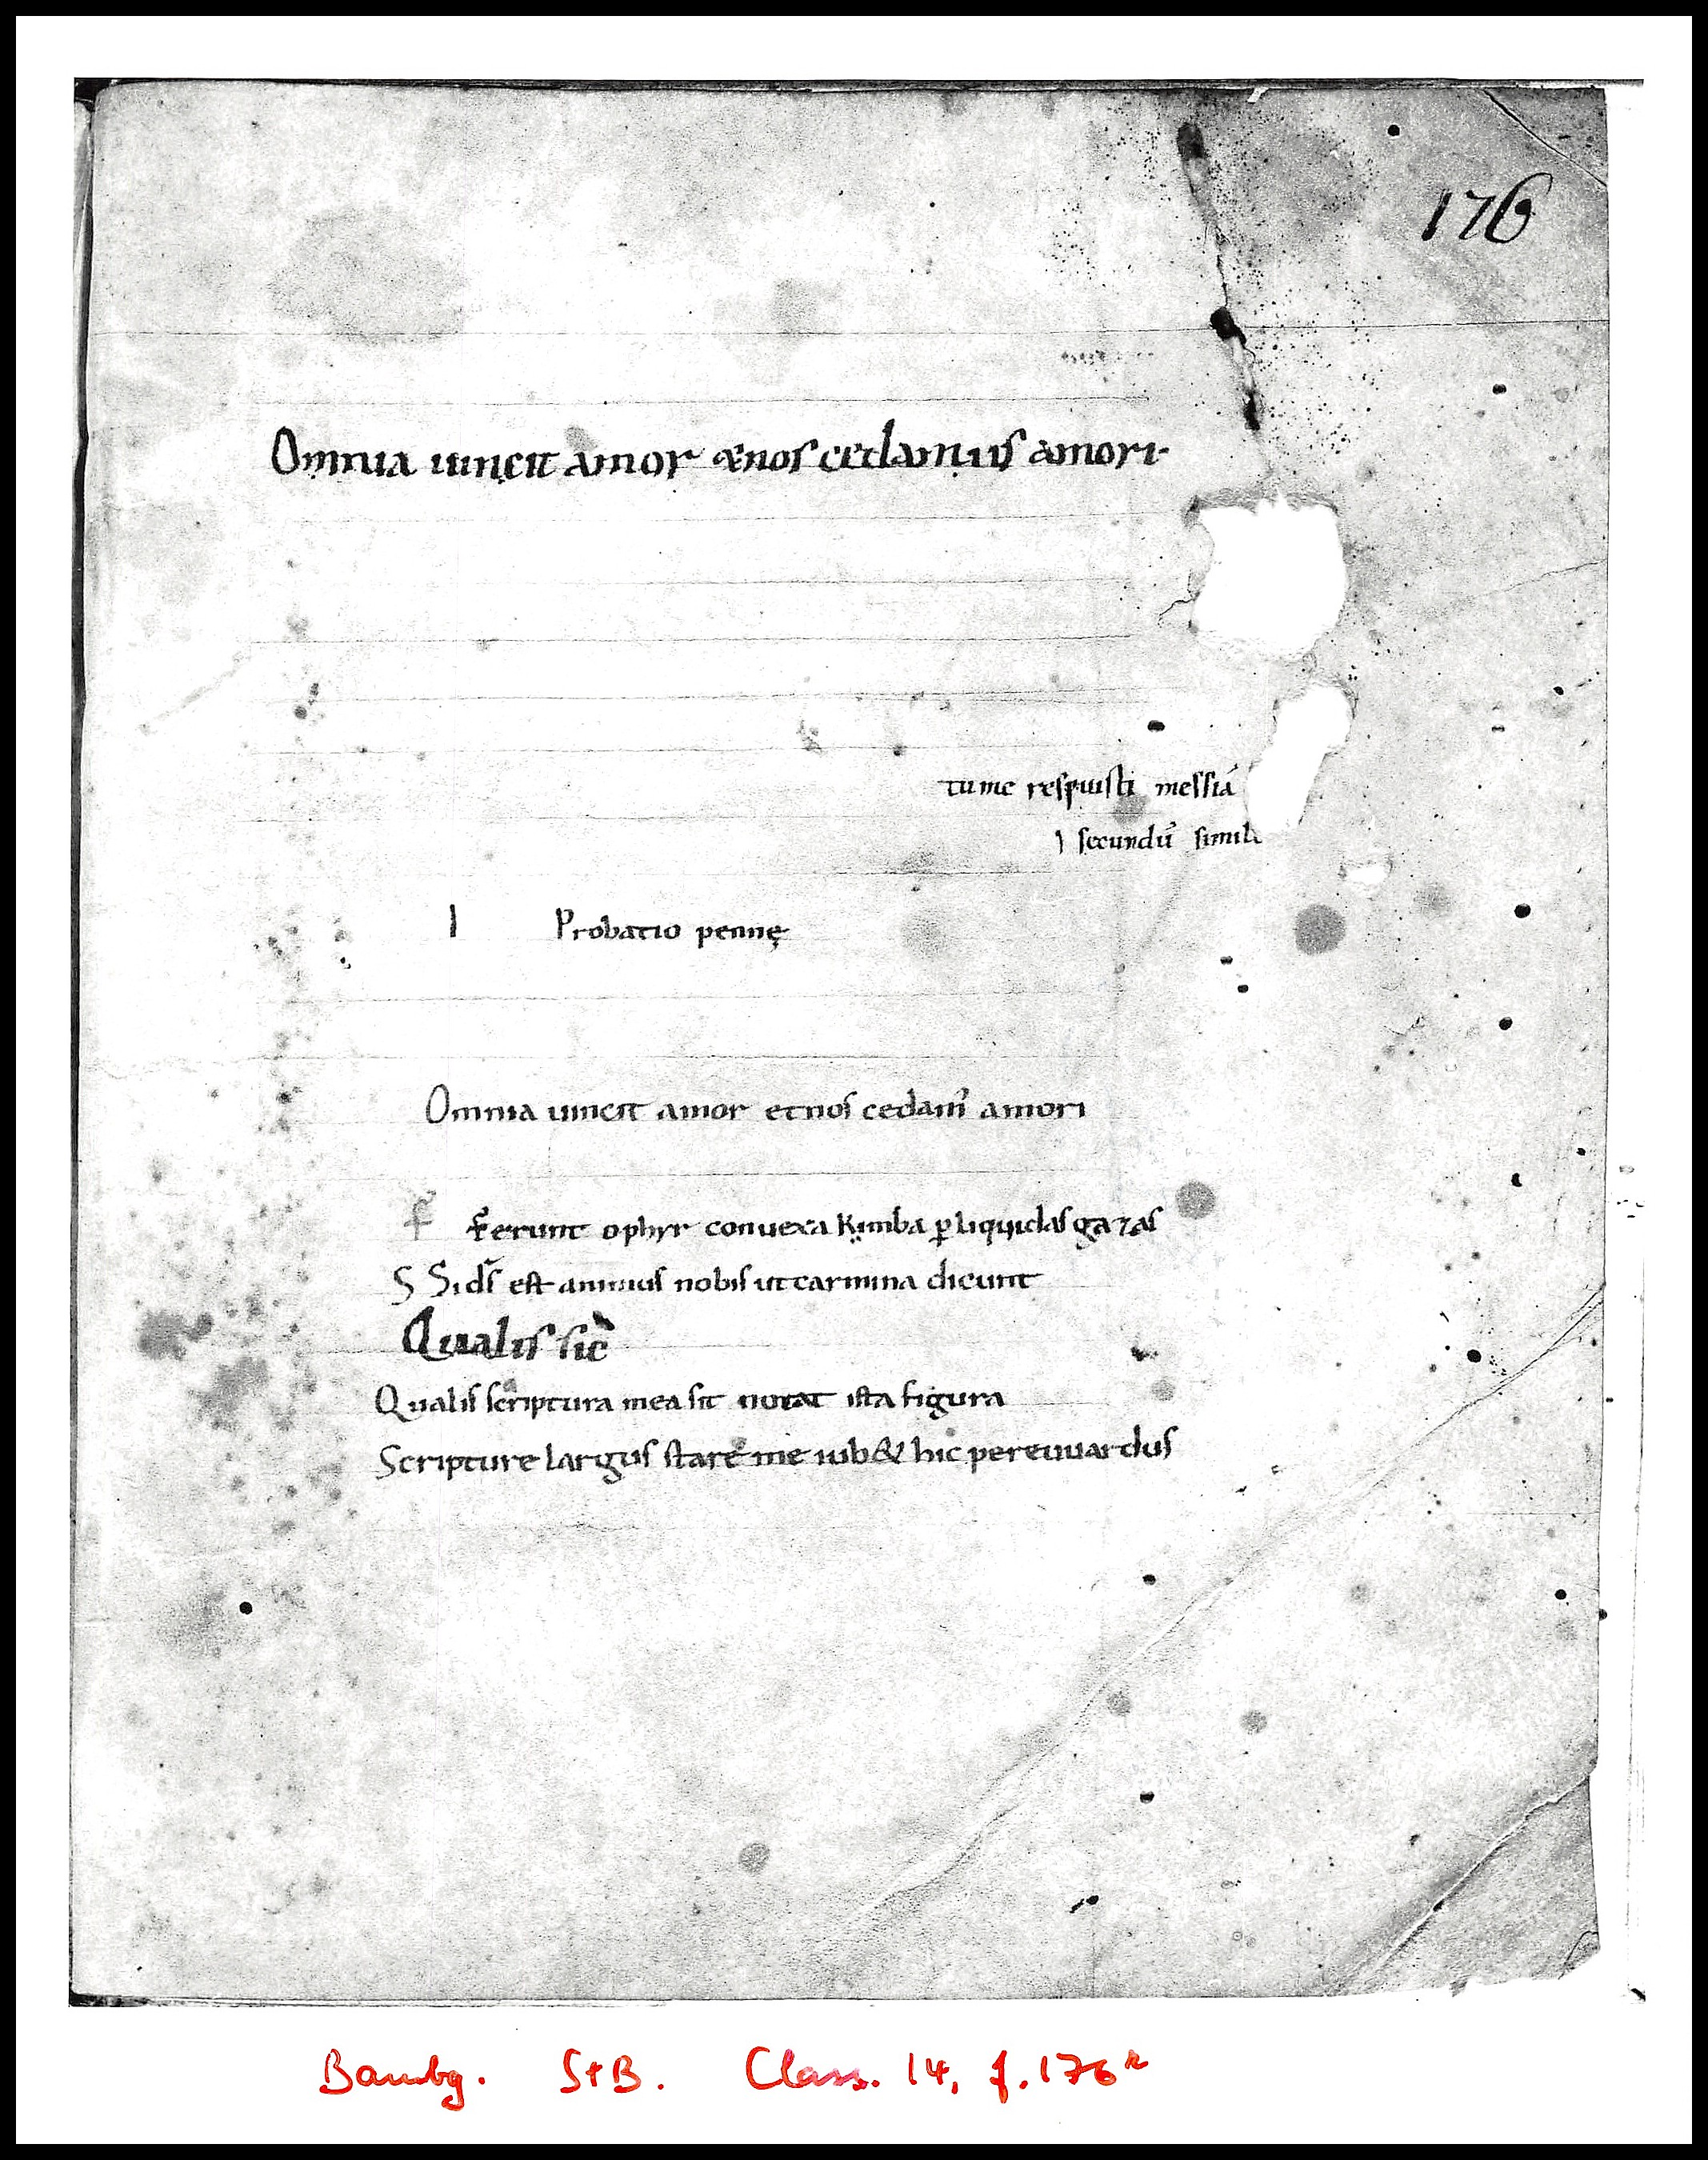 176
Omnia uincit amor & nos cedamus amori·
tu me respuisti messiā
secundū simile
I Probatio pennę
Omnia uincit amor et nos cedam᾽ amori
F Ferunt ophyr conuexa kimba ꝑ liquidas gazas
S Si ds̄ est animus nobis ut carmina dicunt
Qualis sic
Qualis scriptura mea sit notat ista figura
Scripture largus stare me iub& hic pereuuardus
Bambg. StB. Class. 14, f. 176r